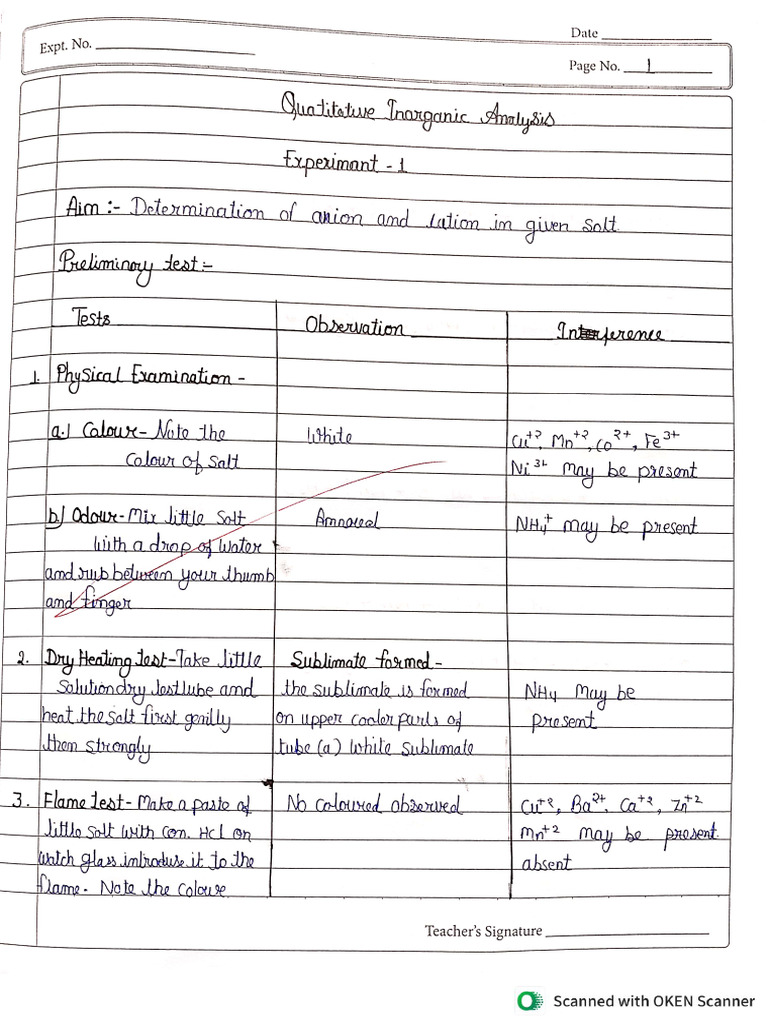 Date
Expt. No.
Page No. 1
Quatitative Inorganic Analysis
Experimant - 1
Aim :- Determination of anion and cation in given salt.
Preliminory test :-
Tests
Observation
Interference
1. Physical Examination -
a.) Colour - Note the
Colour of Salt
White
Cu+2, Mn+2, Co2+, Fe3+
Ni3+ may be present
b) Odour - Mix little Salt
with a drop of water
and rub between your thumb
and finger
NH4+ may be present
2. Dry Heating test - Take little
Solution dry testtube and
heat the salt first genilly
then strongly
Sublimate formed -
the sublimate is formed
on upper cooler parts of
tube (a) White Sublimate
NH4 may be
present
3. Flame test - Make a paste of
little salt with con. HCl on
watch glass introduse it to the
flame. Note the Coloure
No Coloured observed
Cu+2, Ba2+, Ca+2, Zn+2
Mn+2 may be present.
absent
Teacher's Signature
Scanned with OKEN Scanner